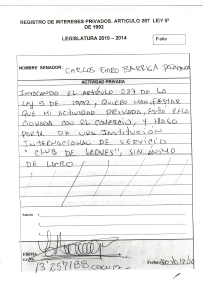 REGISTRO DE INTERESES PRIVADOS. ARTICULO 287 LEY 5ª
DE 1992
LEGISLATURA 2010 – 2014
Folio
NOMBRE SENADOR: CARLOS EMIRO BARRIGA PEÑARANDA
ACTIVIDAD PRIVADA
INVOCANDO EL ARTÍCULO 287 DE LA
LEY 5 DE 1992, QUIERO MANIFESTAR
QUE MI ACTIVIDAD PRIVADA, ESTÁ RELA
CIONADA CON EL COMERCIO, Y HAGO
PARTE DE UNA INSTITUCIÓN
INTERNACIONAL DE SERVICIO
"CLUB DE LEONES", SIN ANIMO
DE LUCRO
Anexos
FIRMA
13'257188
Fecha: